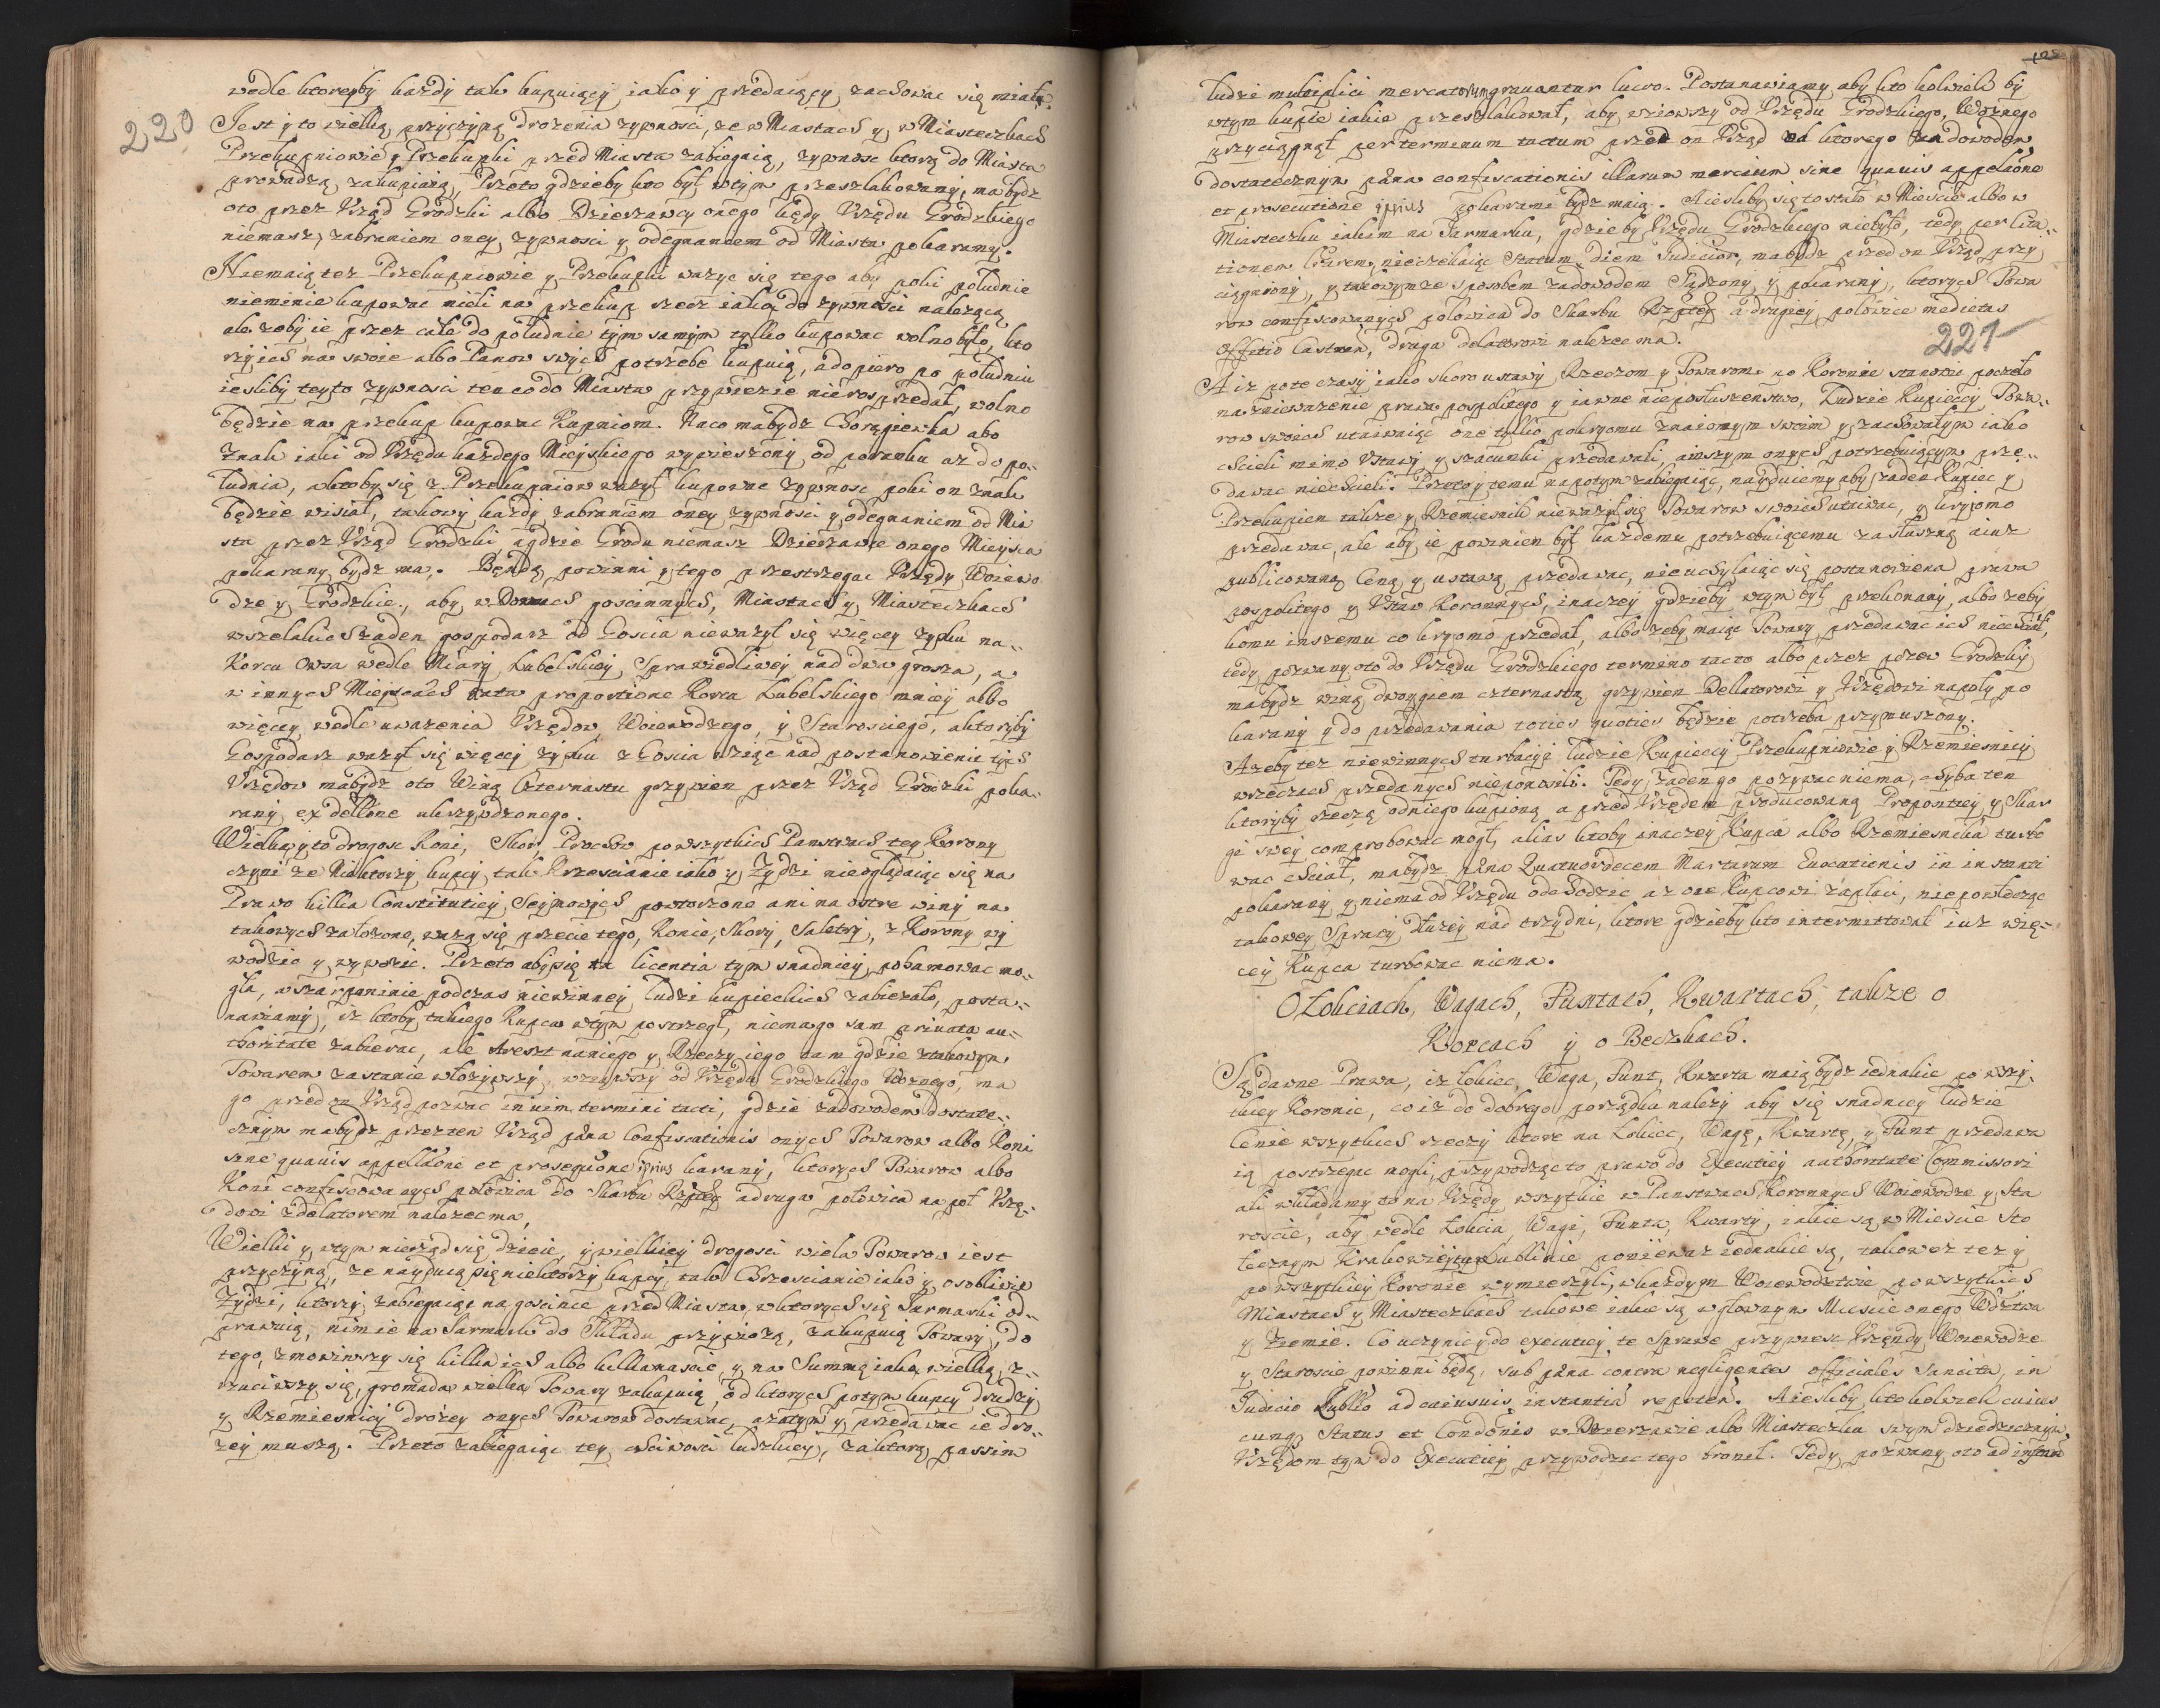 wedle ktoreyby każdy tak kupuiący iako y przedaiący zachowac się miał.
220
Jest y to wielką przyczyną drożenia żywnosci, że w Miastach y w Miasteczkach
Przekupniowie y Przekupki przed Miasta zabiegaią, żywnosc ktorą do Miasta
prowadzą zakupiaią, Przeto gdzieby kto był wtym przeszlakowany, ma bydz
oto przez Vrząd Grodzki albo Dzierzawcy onego kędy Vrzędu Grodzkiego
niemasz, zabraniem oney żywnosci y odegnaniem od Miasta pokarany.
Niemaią tez Przekupniowie y Przekupki ważyc się tego aby poki południe
nieminie kupowac mieli na przekup rzecz iaką do żywnosci należącą
ale żeby ie przez całe do południe tym samym tylko kupowac wolno było, kto
rzy ich na swoie albo Panow swych potrzebe kupuią, a dopiero po południu
iesliby teyto żywnosci ten co do Miasta przywiezie nierosprzedał, wolno
będzie na przekup kupowac Kupniom. Naco ma bydz Chorągiewka abo
Znak iaki od Vrzędu każdego Mieyskiego wywieszony od poranku az do po-
łudnia, a ktoby się z Przekupniow ważył kupowac żywnosc poki on Znak
będzie wisiał, takowy każdy zabraniem oney żywnosci y odegnaniem od Mia
sta przez Vrząd Grodzki, a gdzie Grodu niemasz Dzierzawce onego Mieysca
pokarany bydz ma. Będą powinni y tego przestrzegac Vrzędy Woiewo
dze y Grodzkie, aby w Domach goscinnych, Miastach y Miasteczkach
wszelakich żaden gospodarz od Goscia nieważył się więcey zysku na-
Korcu Owsa wedle Miary Lubelskiey, Sprawiedliwey nad dwa grosza, a
w innych Mieyscach rata proportione Korca Lubelskiego mniey albo
więcey wedle uważenia Vrzędow Woiewodzego, y Starosciego, a ktoryby
Gospodarz ważył się więcey zysku z Goscia wziąc nad postanowienie tych
Vrzędow ma bydz oto Winą Czternastu grzywien przez Vrząd Grodzki poka-
rany ex dellõne ukrzywdzonego.
Wielka y to drogosc Koni, Skor Prochow po wszytkich Panstwach tey Korony
czyni że Niektorzy kupcy tak Krzescianie iako y Żydzi nieoglądaiąc się na
Prawo kilka Constitutiey Seymowych powtorzone ani na ostre winy na
takowych założone, ważą się przecie tego, Konie, Skory, Saletry, z Korony wy
wodzic y wywozic. Przeto aby się ta licentia tym snadniey pohamowac mo-
gła, a szarpaninie podczas niewinney ludzi kupieckich zabieżało, posta-
nawiamy, iż ktoby takiego Kupca wtym postrzegł, niema go sam priuata au-
thoritate zabierac, ale Areszt naniego y Rzeczy iego tam gdzie ztakowym
Towarem zastanie włożywszy, wziąwszy od Vrzędu Grodzkiego Woznego, ma
go przed on Vrząd pozwac in uim termini tacti, gdzie zadowodem dostate-
cznym ma bydz przez ten Vrząd pæna Confiscationis onych Towarow albo Koni
sine quauis appellõne et prosequõne ipsius karany, ktorych Towarow albo
Koni confiscowanych połowica do Skarbu Rzptey a druga połowica na poł Vrzę-
dowi z delatorem należec ma.
Wielki y wtym nierząd się dzieie, y wielkiey drogosci wiela Towarow iest
przyczyną, że nayduią się niektorzy kupcy tak Chrzescianie iako y osobliwie
Żydzi, ktorzy zabiegaiąc na goscince przed Miasta, w ktorych się Jarmarki od-
prawuią, nim ie na Jarmark do Składu przywiozą, zakupuią Towary, do
tego, zmowiwszy się kilka ich albo kilkanascie, y na Summę iaką wielką z-
rzuciwszy się, gromadą wielką Towary zakupuią, od ktorych potym kupcy drudzy
y Rzemiesnicy drożey onych Towarow dostawac, a zatym y przedawac ie dro-
żey muszą. Przeto zabiegaiąc tey chciwosci ludzkiey, za ktorą passim
ludzi multiplici mercatorum grauantur lucro. Postanawiamy aby kto kolwiek by
wtym kupce iakie przeszlakował, aby wziowszy od Vrzędu Grodzkiego, Woznego
przyciągnął per terminum tactum przed on Vrząd od ktorego za dowodem
dostatecznym pæna confiscationis illarum mercium sine quauis appelaõne
et prosecutione ipsius pokarani bydz maią. A iesliby się to stało w Miescie albo w
Miasteczku iakim na Jarmarku, gdzieby Vrzędu Grodzkiego niebyło, tedy per Cita-
tionem literem, nieczekaiąc Statum diem Judicior, ma bydz przed on Vrząd przy
ciągniony, y takowymze sposobem zadowodem Sądzony y pokarany, ktorych Towa
row confiscowanych połowica do Skarbu Rzptey a drugiey połowice medietas
Officio Castrensi, druga delatorowi należec ma.
221
A iż pote czasy iako skoro ustawy Rzeczom y Towarom po Koronie stanowic poczęto
na znieważenie prawa pospolitego y iawne nieposłuszenstwo, Ludzie Kupieccy Towa-
row swoich utaiwaiąc one tylko pokryomu znaiomym swoim y zachowałym iako
chcieli mimo Vstawy y szacunki przedawali, a inszym onych potrzebuiącym prze-
dawac niechcieli. Przeto y temu napotym zabiegaiąc, nayduiemy aby żaden Kupiec y
Przekupien takze y Rzemiesnik nieważył się Towarow swoich utaiwac, y kryiomo
przedawac, ale aby ie powinien był każdemu potrzebuiącemu za słuszną a iuż
publicowaną Ceną y ustawą przedawac, nieuchylaiąc się postanowienia prawa
pospolitego y Vstaw Koronnych, inaczey gdzieby wtym był przekonany, albo żeby
komu inszemu co kryomo przedał, albo żeby maiąc Towary przedawac ich niechciał,
tedy pozwany oto do Vrzędu Grodzkiego termino tacto albo przez pozew Grodzky
ma bydz winą dwoygiem czternastą grzywien Dellatorowi y Vrzędowi napoły po
karany y do przedawania toties quoties będzie potrzeba przymuszony.
A żeby tez niewinnych turbacyi ludzie Kupieccy Przekupniowie y Rzemiesnicy
wrzeczach przedanych nieponosili. Tedy żaden go pozywac niema, chyba ten
ktoryby rzeczą od niego kupioną a przed Vrzędem producowaną Propositiey y Skar
gi swey comprobowac mogł, alias ktoby inaczey Kupca albo Rzemiesnika turbo
wac chciał, ma bydz pæna Quatuordecem Marcarum Euocationis in instanti
pokarany y niema od Vrzędu odchodzic, az one Kupcowi zapłaci, niepowłocząc
takowey Sprawy dłużey nad trzydni, ktore gdzieby kto intermittował iuż wię-
cey Kupca turbowac niema.
O Łokciach, Wagach, Funtach, Kwartach, takze o
Korcach y o Beczkach.
Są dawne Prawa, iż łokiec, Waga, Funt, Kwarta maią bydz iednakie po wszy-
tkiey Koronie, co iż do dobrego porządku należy aby się snadniey ludzie
Cenie wszytkich rzeczy ktore na Łokiec, Wagę, Kwartę, y Funt przedawa
ią postrzegac mogli, przywodząc to prawo do Executiey authoritate Commissori
ali wkładamy to na Vrzędy wszytkie w Panstwach Koronnych Woiewodze y Sta
roscie, aby wedle Łokcia, Wagi, Funta, Kwarty, iakie są w Miescie Sto
łecznym Krakowie y w Lublinie ponieważ iednakie są, takowez tez y
po wszytkiey Koronie wymierzyli, w każdym Woiewodztwie po wszytkich
Miastach y Miasteczkach takowe iakie są wgłownym Miescie onego Wdztwa
y Ziemie. Co uczynic y do executiey te Sprawe przywiesc Vrzędy Woiewodze
y Staroscie powinni będą, sub pæna contra negligentes officiales Sancita, in
Judicio Lublô ad cuiusuis instantiã repeten. A iesliby kto kolwiek cuius
cunq Status et Condõnis w Dzierzawie albo Miasteczku swym dziedzicznym,
Vrzędom tym do Executiey przywodzic tego bronił. Tedy pozwany oto ad instan